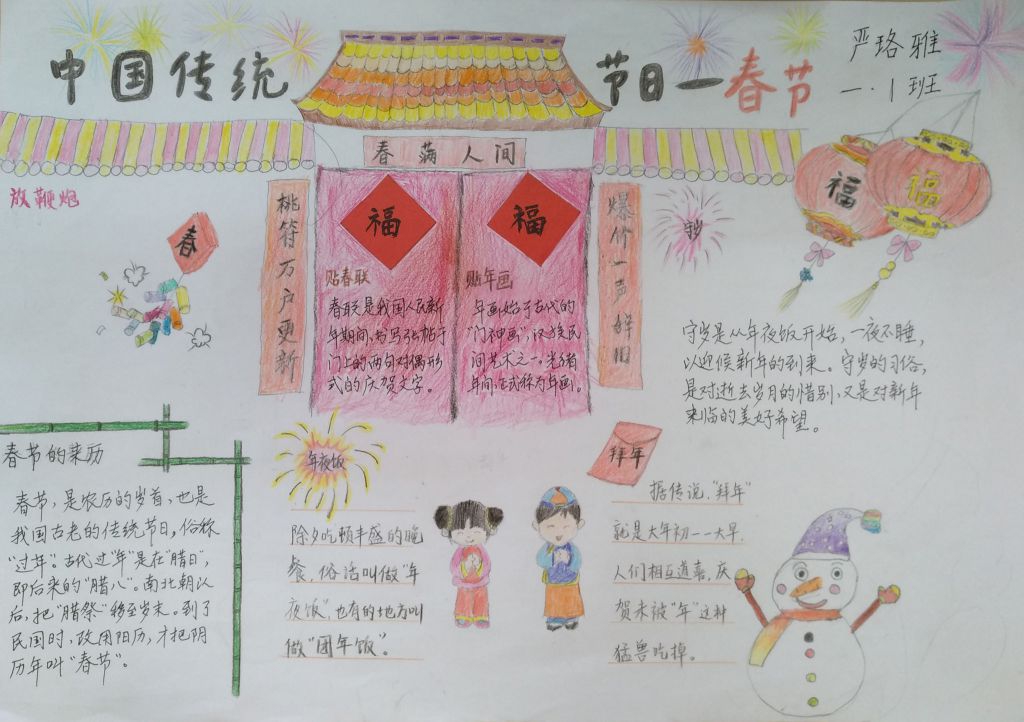 中国传统
节日一春节
严珞雅
一·1班
春满人间
桃符万户更新
爆竹一声辞旧
福
福
福
福
放鞭炮
春
贴春联
春联是我国人民新
年期间,书写张贴于
门上的两句对偶形
式的庆贺文字。
贴年画
年画始于古代的
"门神画",汉族民
间艺术之一。光绪
年间,正式称为年画。
守岁
守岁是从年夜饭开始,一夜不睡,
以迎候新年的到来。守岁的习俗,
是对逝去岁月的惜别,又是对新年
来临的美好希望。
春节的来历
春节,是农历的岁首,也是
我国古老的传统节日,俗称
"过年"。古代过"年"是在"腊日",
即后来的"腊八"。南北朝以
后,把"腊祭"移至岁末。到了
民国时,改用阳历,才把阴
历年叫"春节"。
年夜饭
除夕吃顿丰盛的晚
餐,俗话叫做"年
夜饭",也有的地方叫
做"团年饭"。
拜年
据传说,"拜年"
就是大年初一一大早,
人们相互道喜,庆
贺未被"年"这种
猛兽吃掉。